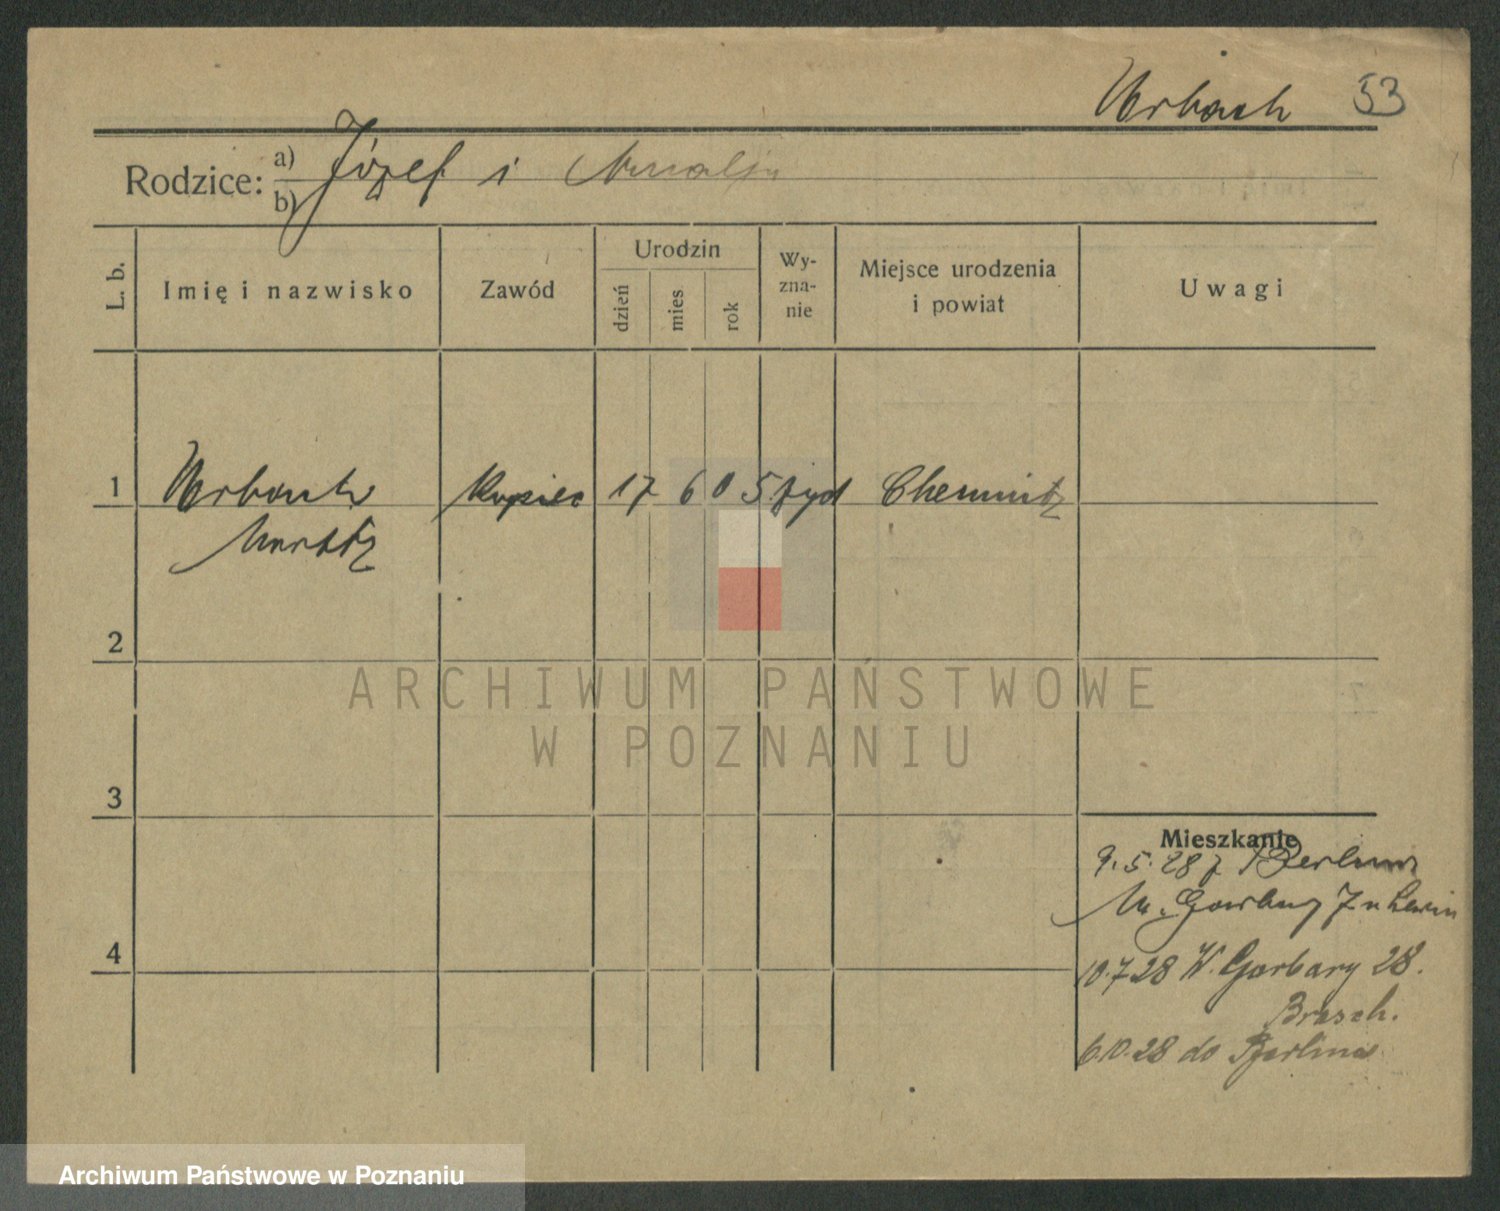 Urbach 53
Rodzice: a) Józef i Amalja
b)
L. b. Imię i nazwisko Zawód Urodzin dzień mies rok Wyznanie Miejsce urodzenia i powiat Uwagi
1 Urbach Kupiec 17 6 05 żyd Chemnitz
Moritz
2
ARCHIWUM PAŃSTWOWE
W POZNANIU
3
Mieszkanie
9.5.28 z Berlina
W. Garbary 7 u Lewin
4
10.7 28 W. Garbary 28.
Brasch.
6.10.28 do Berlina
Archiwum Państwowe w Poznaniu